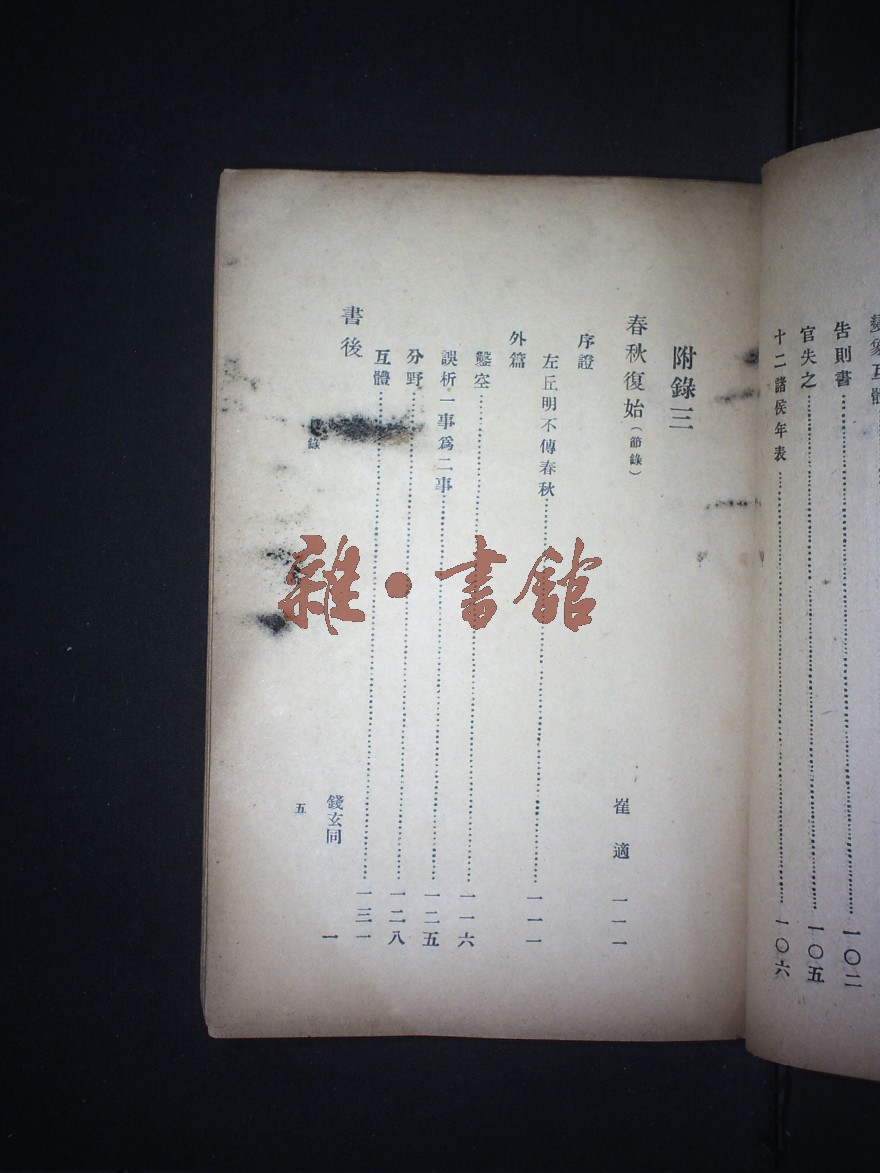 變象互體
告則書……一〇二
官失之……一〇五
十二諸侯年表……一〇六
附錄三
春秋復始(節錄) 崔適 一一一
序證
左丘明不傳春秋……一一一
外篇
鑿空……一一六
誤析一事爲二事……一二五
分野……一二八
互體……一三一
書後 錢玄同 一
錄 五
雜·書館